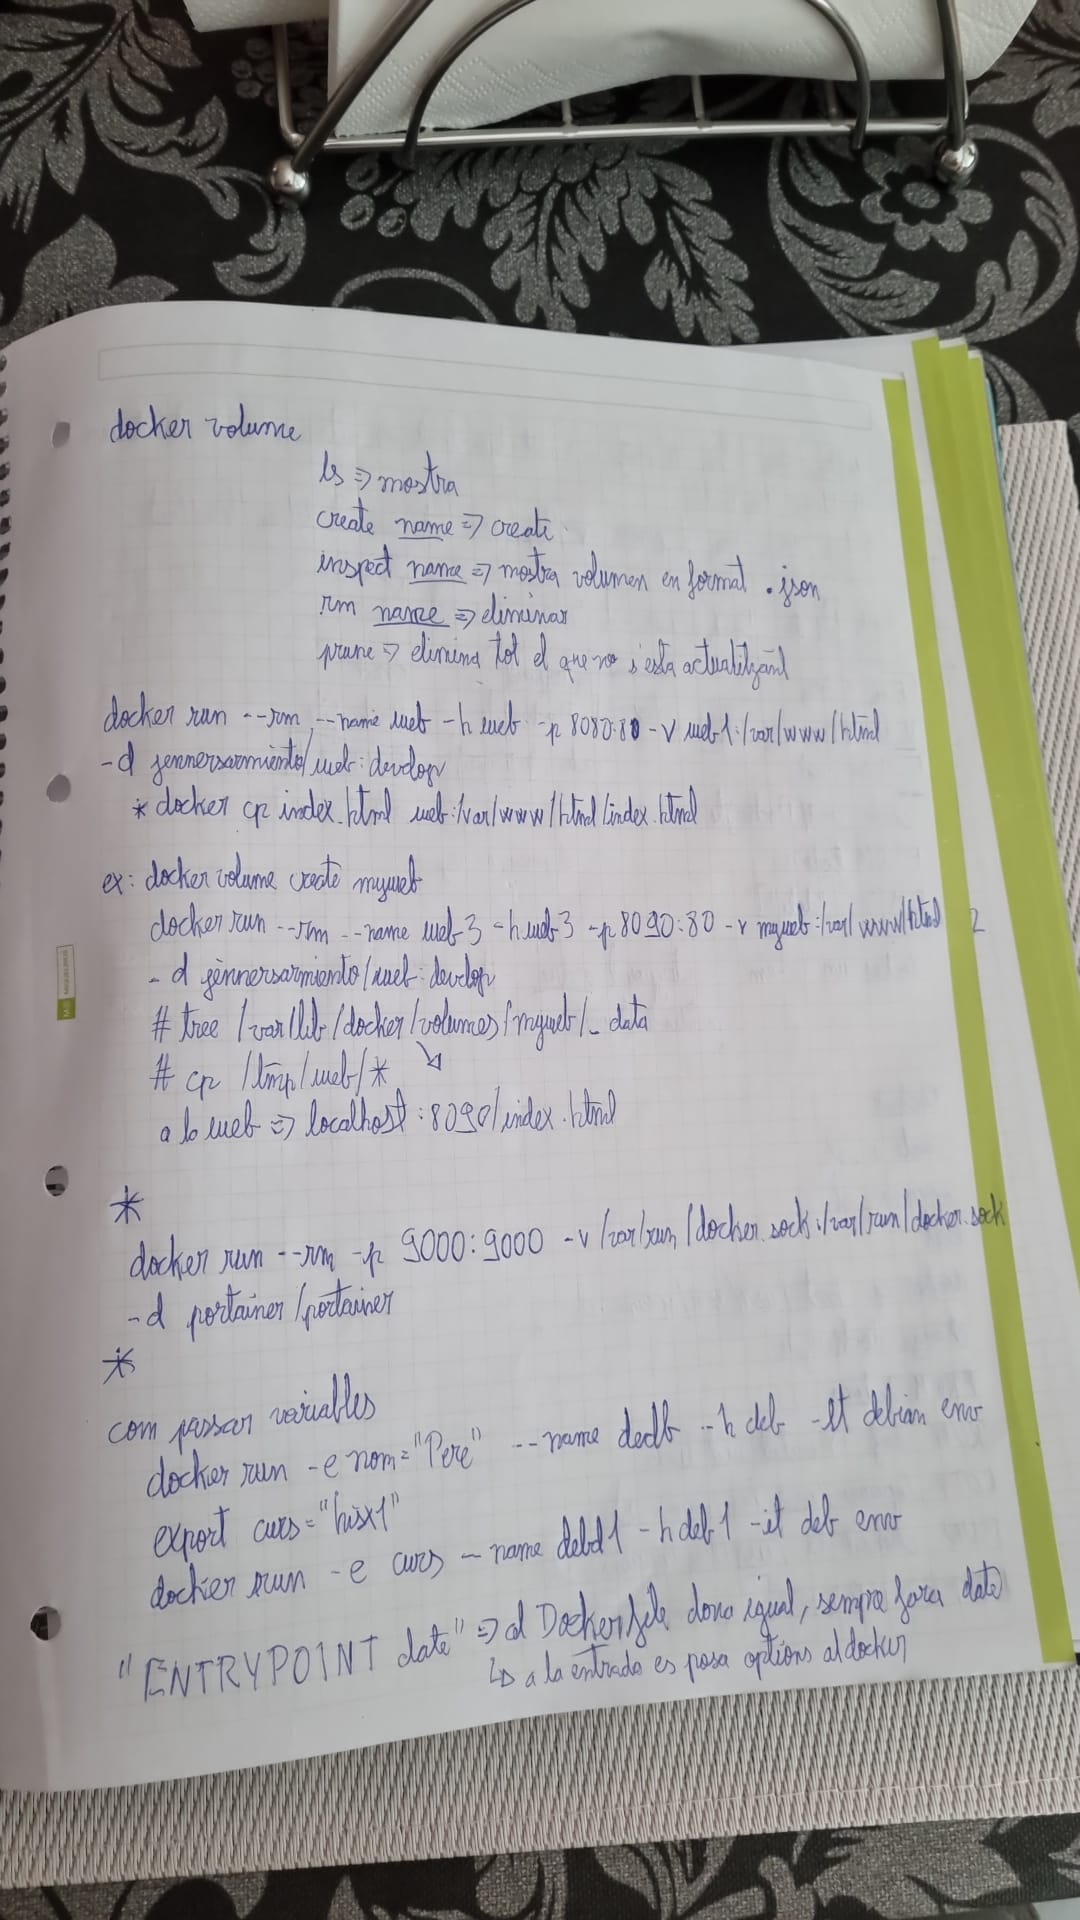 docker volume
ls => mostra
create name => create
inspect name => mostra volumen en format .json
rm name => eliminar
prune => elimina tot el que no s'esta actualitzant
docker run --rm --name web -h web -p 8080:80 -v web1:/var/www/html
-d jennersarmiento/web:develop
* docker cp index.html web:/var/www/html/index.html
ex: docker volume create myweb
docker run --rm --name web3 -h web3 -p 8090:80 -v myweb:/var/www/html
-d jennersarmiento/web:develop
# tree /var/lib/docker/volumes/myweb/_data
# cp /tmp/web/* ↘
a la web => localhost:8090/index.html
*
docker run --rm -p 9000:9000 -v /var/run/docker.sock:/var/run/docker.sock
-d portainer/portainer
*
com passar variables
docker run -e nom="Pere" --name -h deb -it debian env
export curs="hisx1"
docker run -e curs --name debd1 -h deb1 -it deb env
"ENTRYPOINT date" => al Dockerfile dona igual, sempre fara date
↳ a la entrada es posa options al docker